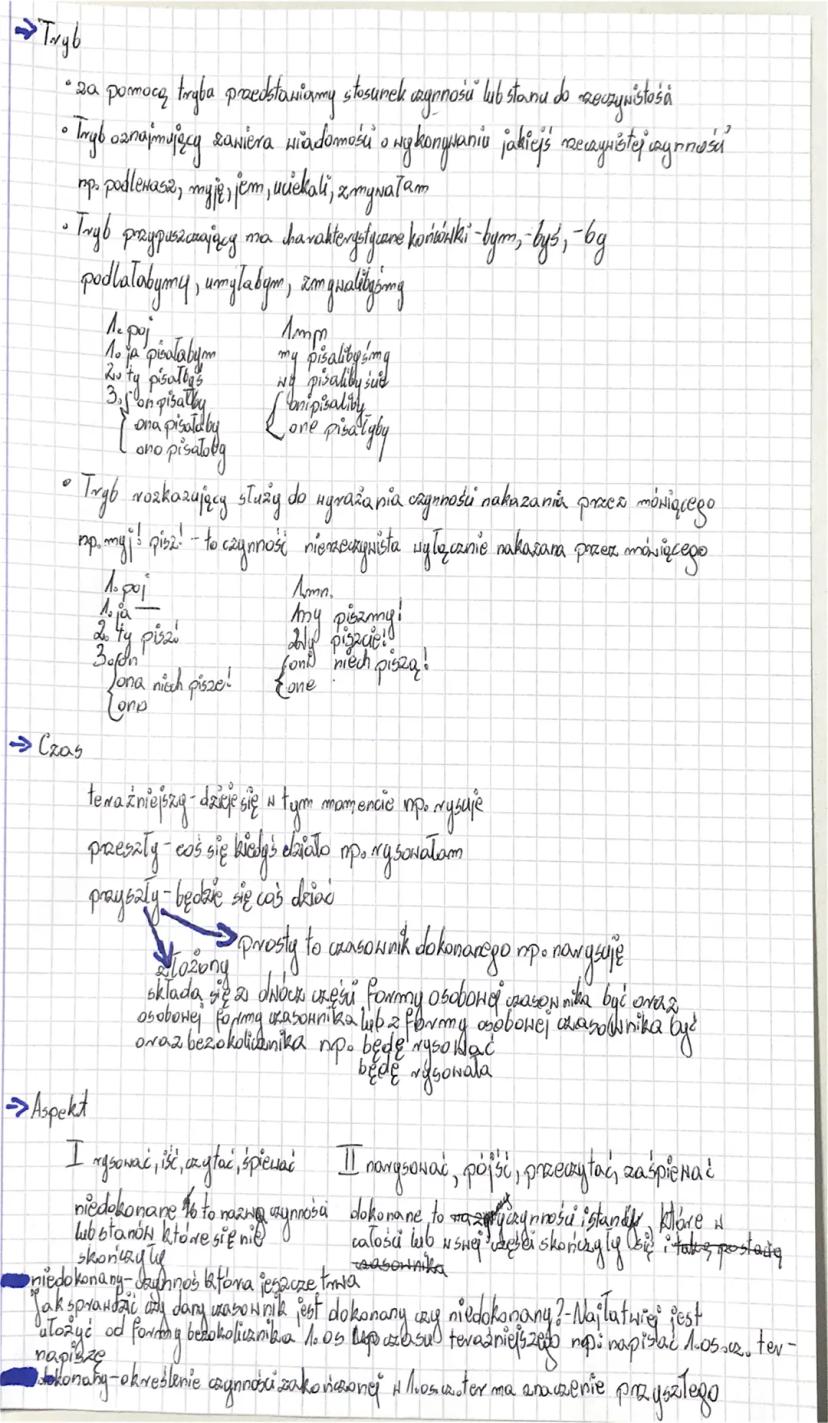 → Tryb
• za pomocą tryba przedstawiamy stosunek czynności lub stanu do rzeczywistości
• Tryb oznajmujący zawiera wiadomości o wykonywaniu jakiejś rzeczywistej czynności
np. podlewasz, myję, jem, uciekali, zmywałam
• Tryb przypuszczający ma charakterystyczne końcówki -bym, -byś, -by
podlałabymy, umyłabym, zmywalibyśmy
l. poj l.mn
1. ja pisałabym my pisalibyśmy
2. ty pisałbyś wy pisalibyście
3. { on pisałby { oni pisaliby
ona pisałaby one pisałyby
ono pisałoby
• Tryb rozkazujący służy do wyrażania czynności nakazania przez mówiącego
np. myj! pisz! - to czynność nierzeczywista wyłącznie nakazana przez mówiącego
l. poj l.mn.
1. ja — 1my piszmy!
2. ty pisz! 2Wy piszcie!
3. { on { oni niech piszą!
ona niech pisze! one
ono
→ Czas
teraźniejszy - dzieje się w tym momencie np. rysuje
przeszły - coś się kiedyś działo np. rysowałam
przyszły - będzie się coś dziać
prosty to czasownik dokonanego np. narysuję
złożony
składa się z dwócz części formy osobowej czasownika być oraz
osobowej formy czasownika lub z formy osobowej czasownika być
oraz bezokolicznika np. będę rysować
będę rysowała
→ Aspekt
I rysować, iść, czytać, śpiewać II narysować, pójść, przeczytać, zaśpiewać
niedokonane to nazwa czynności dokonane to czynności i stanów, które w
lub stanów które się nie całości lub w swej części skończyły się i taką postacią
skończyły czasownika
niedokonany - czynnoś która jeszcze trwa
Jak sprawdzić czy dany czasownik jest dokonany czy niedokonany? - Najłatwiej jest
ułożyć od formy bezokolicznika 1. os czasu teraźniejszego np: napisać 1.os.cz. ter -
napiszę
dokonany - określenie czynności zakończonej w 1.os.cz.ter ma znaczenie przyszłego